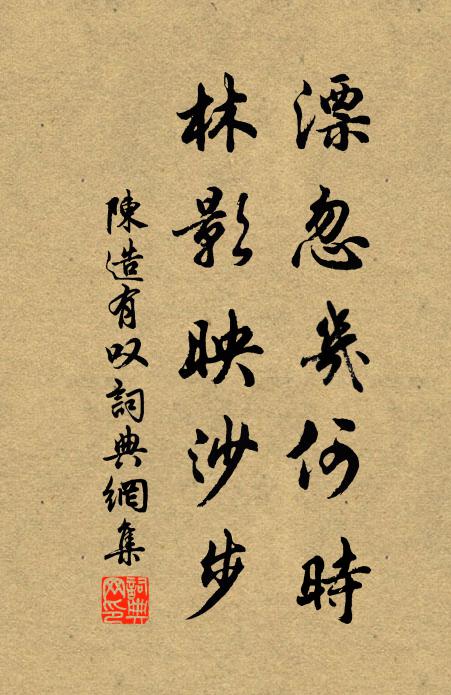 溧忽幾何時
林影映沙步
陳造有叹詞典網集
詞典網印